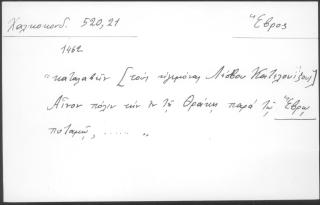 Χαλκοκονδ. 520,21 Ἕβρος
1462
"καταλαβὼν [τοὺς ἡγεμόνας Λέσβου Κατελούζους]
Αἶνον πόλιν τὴν ἐν τῇ Θρᾴκῃ παρὰ τῷ Ἕβρῳ
ποταμῷ, ...... "